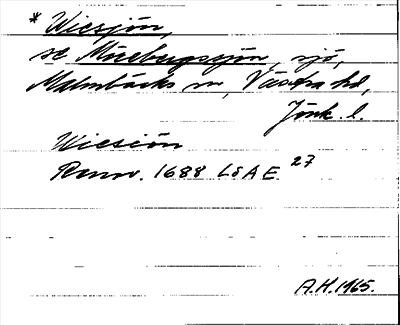 * Wiesjön,
se Munebugssjön, sjö,
Malmbäcks sn, Västra hd,
Jönk. l.
Wiesiön
Rannr. 1688 LSAE 27
A.H. 1965.